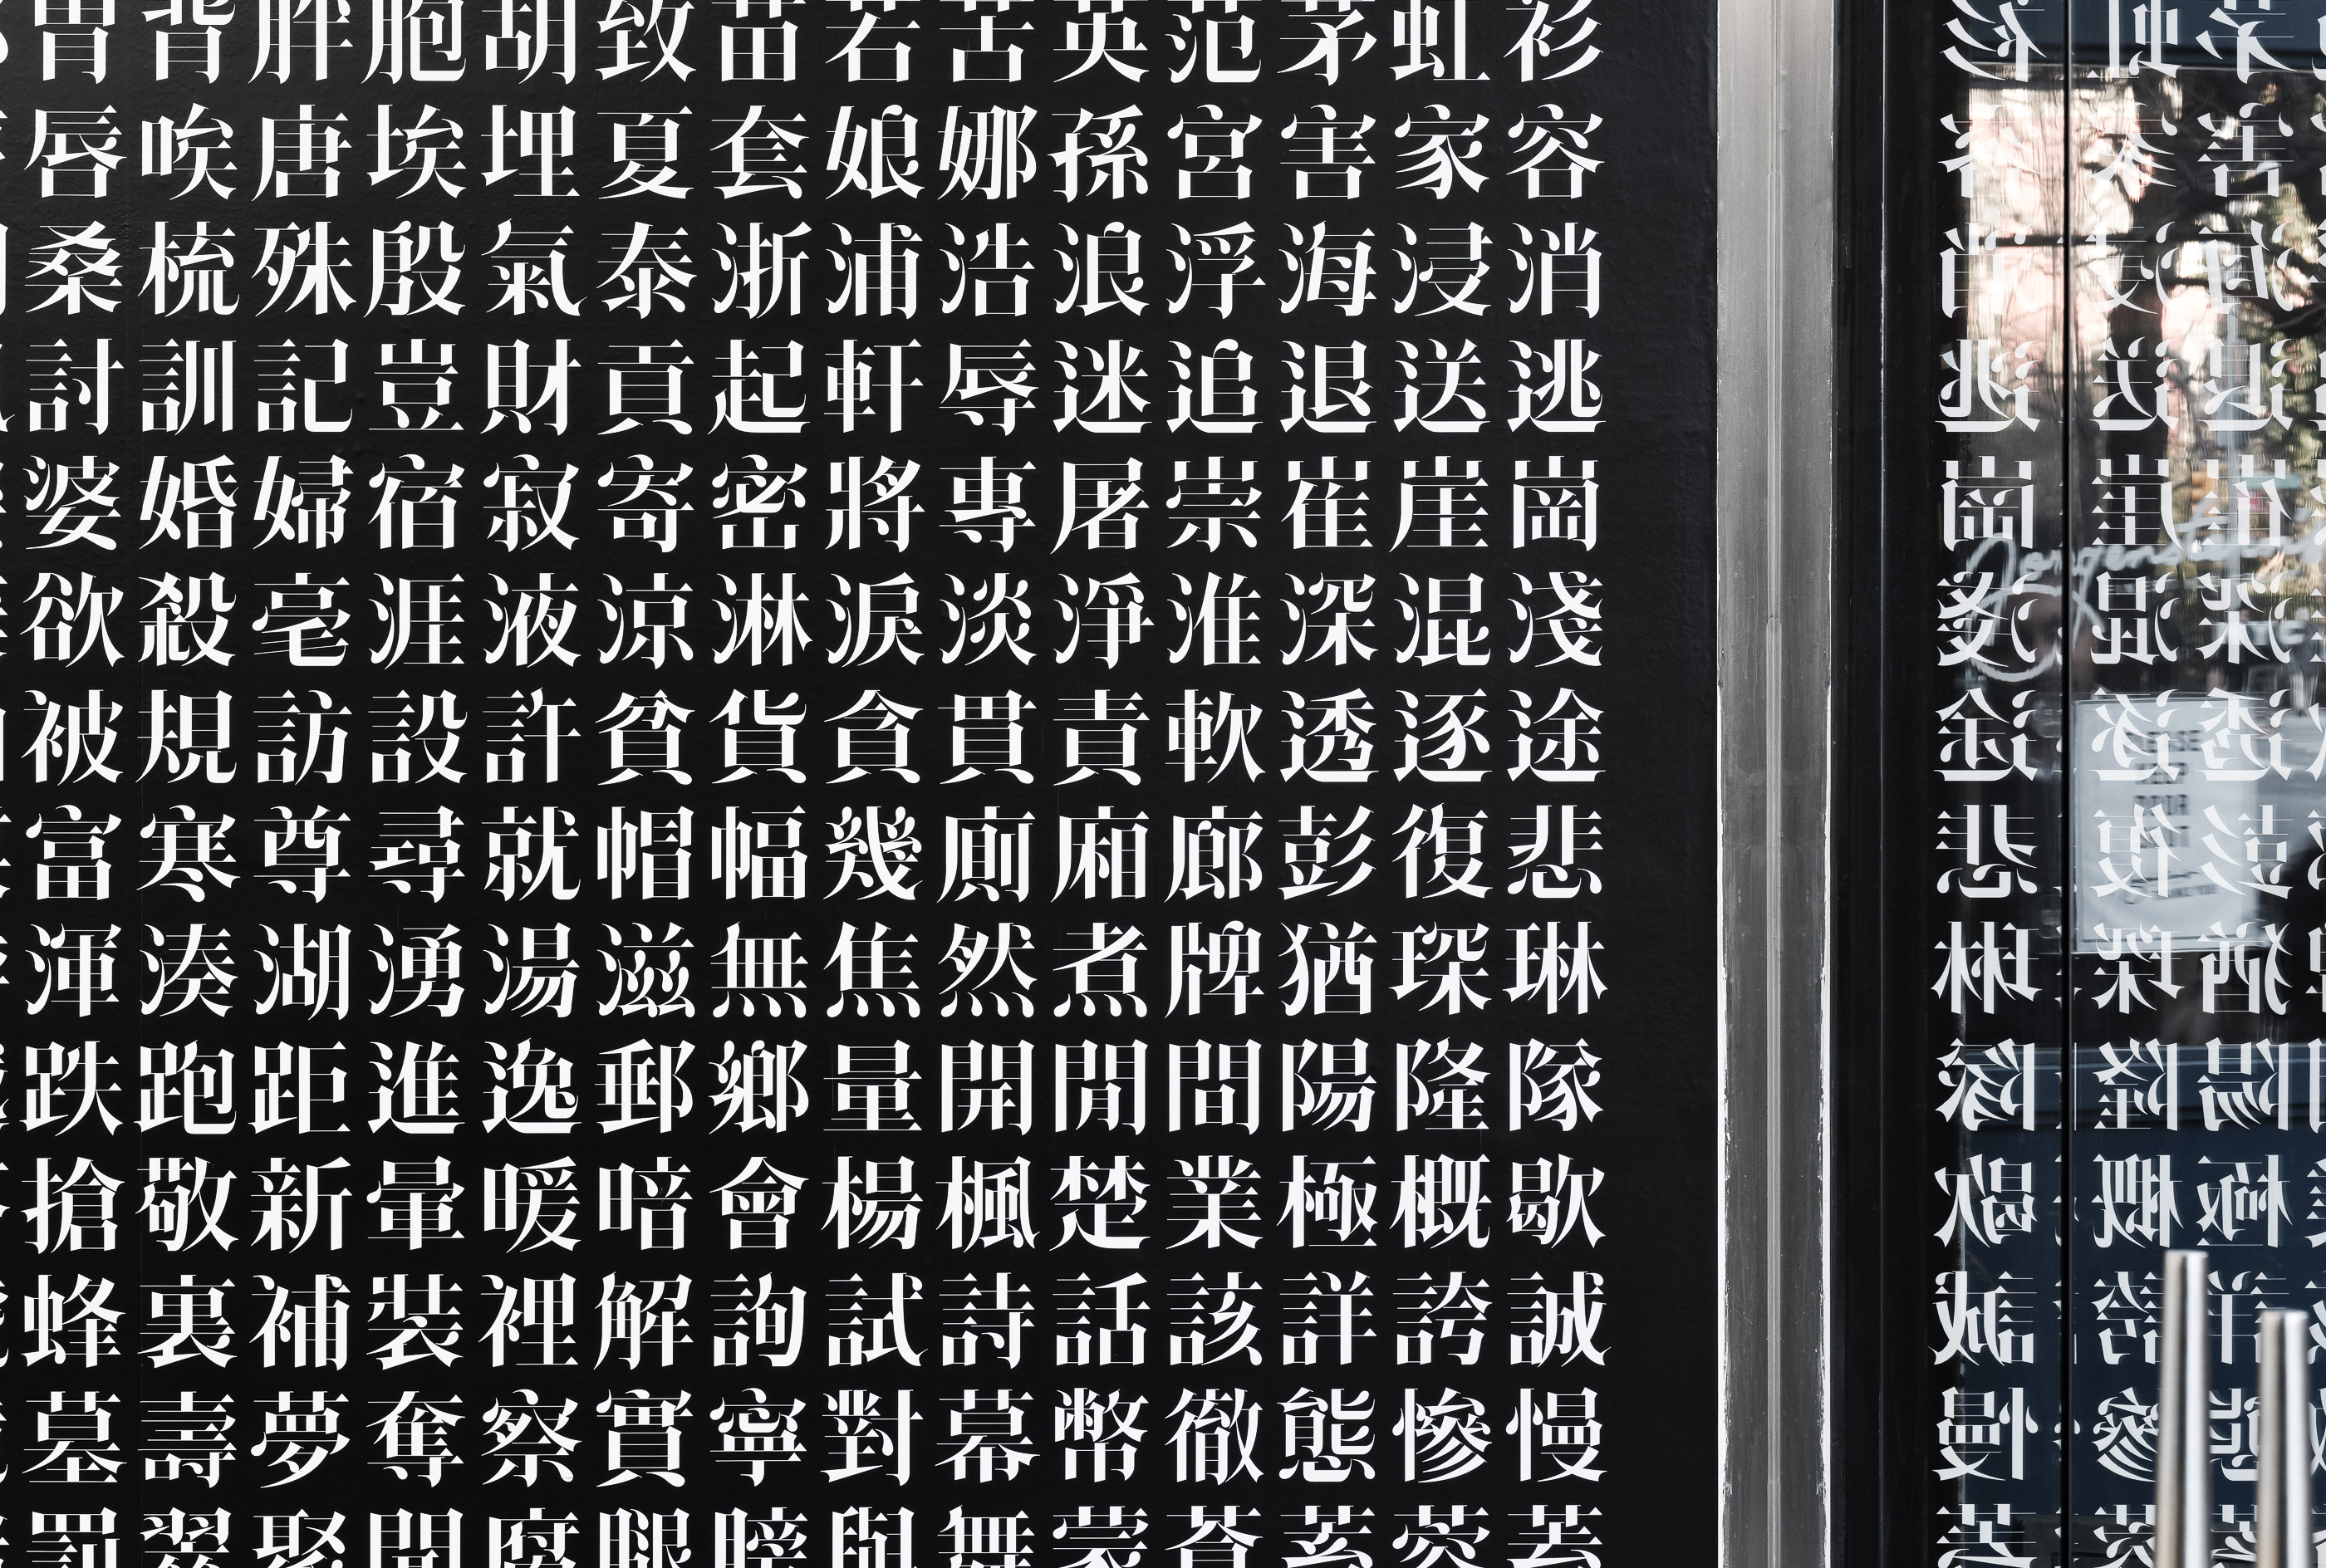 胄背胖胞胡致苗若苦英范茅虹衫
唇唉唐埃埋夏套娘娜孫宮害家容
桑梳殊殷氣泰浙浦浩浪浮海浸消
討訓記豈財貢起軒辱迷追退送逃
婆婚婦宿寂寄密將專屠崇崔崖崗
欲殺毫涯液涼淋淚淡淨淮深混淺
被規訪設許貧貨貪貫責軟透逐途
富寒尊尋就帽幅幾廁廂廊彭復悲
渾湊湖湧湯滋無焦然煮牌猶琛琳
跌跑距進逸郵鄉量開閒間陽隆隊
搶敬新暈暖暗會楊楓楚業極概歇
蜂裏補裝裡解詢試詩話該詳誇誠
墓壽夢奪察實寧對幕幣徹態慘慢
罰翠聚聞腐腿膀與舞蒙蒼蓄蓉蓋